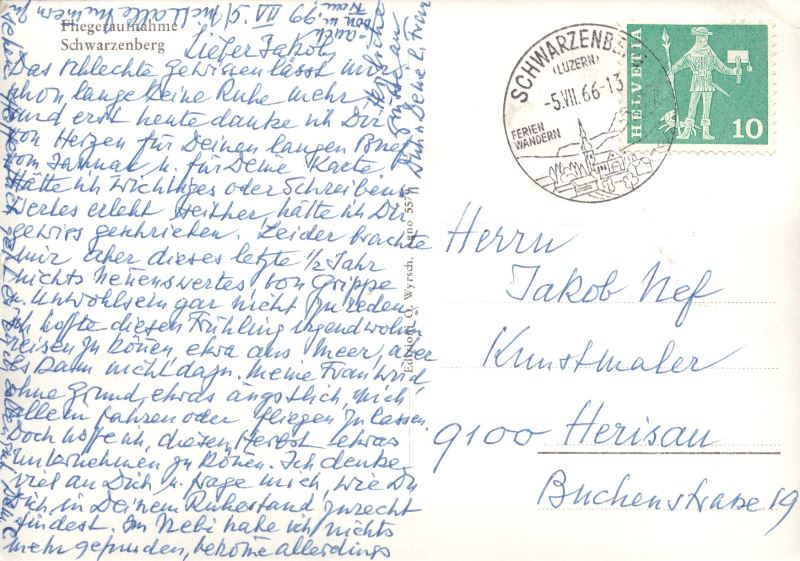 Fliegeraufnahme
Schwarzenberg
Lieber Jakob
Das schlechte Gewissen lässt mir
schon lange keine Ruhe mehr
und erst heute danke ich Dir
von Herzen für Deinen langen Brief
vom Januar u. für Deine Karte
Hätte ich wichtiges oder Schreibens
wertes erlebt seither, hätte ich Dir
gewiss geschrieben. Leider brachte
mir aber dieses letzte 1/2 Jahr
nichts Nennenswertes von Grippe
u. Unwohlsein gar nicht zu reden.
Ich hoffte diesen Frühling irgendwohin
reisen zu können etwa ans Meer, aber
es kam nicht dazu. Meine Frau wird
ohne Grund etwas ängstlich, mich
allein fahren oder fliegen zu lassen.
Doch hoffe ich, diesen Herbst etwas
unternehmen zu können. Ich denke
viel an Dich u. frage mich, wie Du
Dich in Deinem Ruhestand zurecht
findest. Im Nebi habe ich nichts
mehr gefunden, bekomme allerdings
nicht alle Nummern zu
Herzliche
Grüsse an
Dich u Deine l. Frau
auch
von m.
Frau
Edition O. Wyrsch,
SCHWARZENBERG
(LUZERN)
-5.VII.66-13
FERIEN
WANDERN
HELVETIA
10
Herrn
Jakob Nef
Kunstmaler
9100 Herisau
Buchenstraße 19